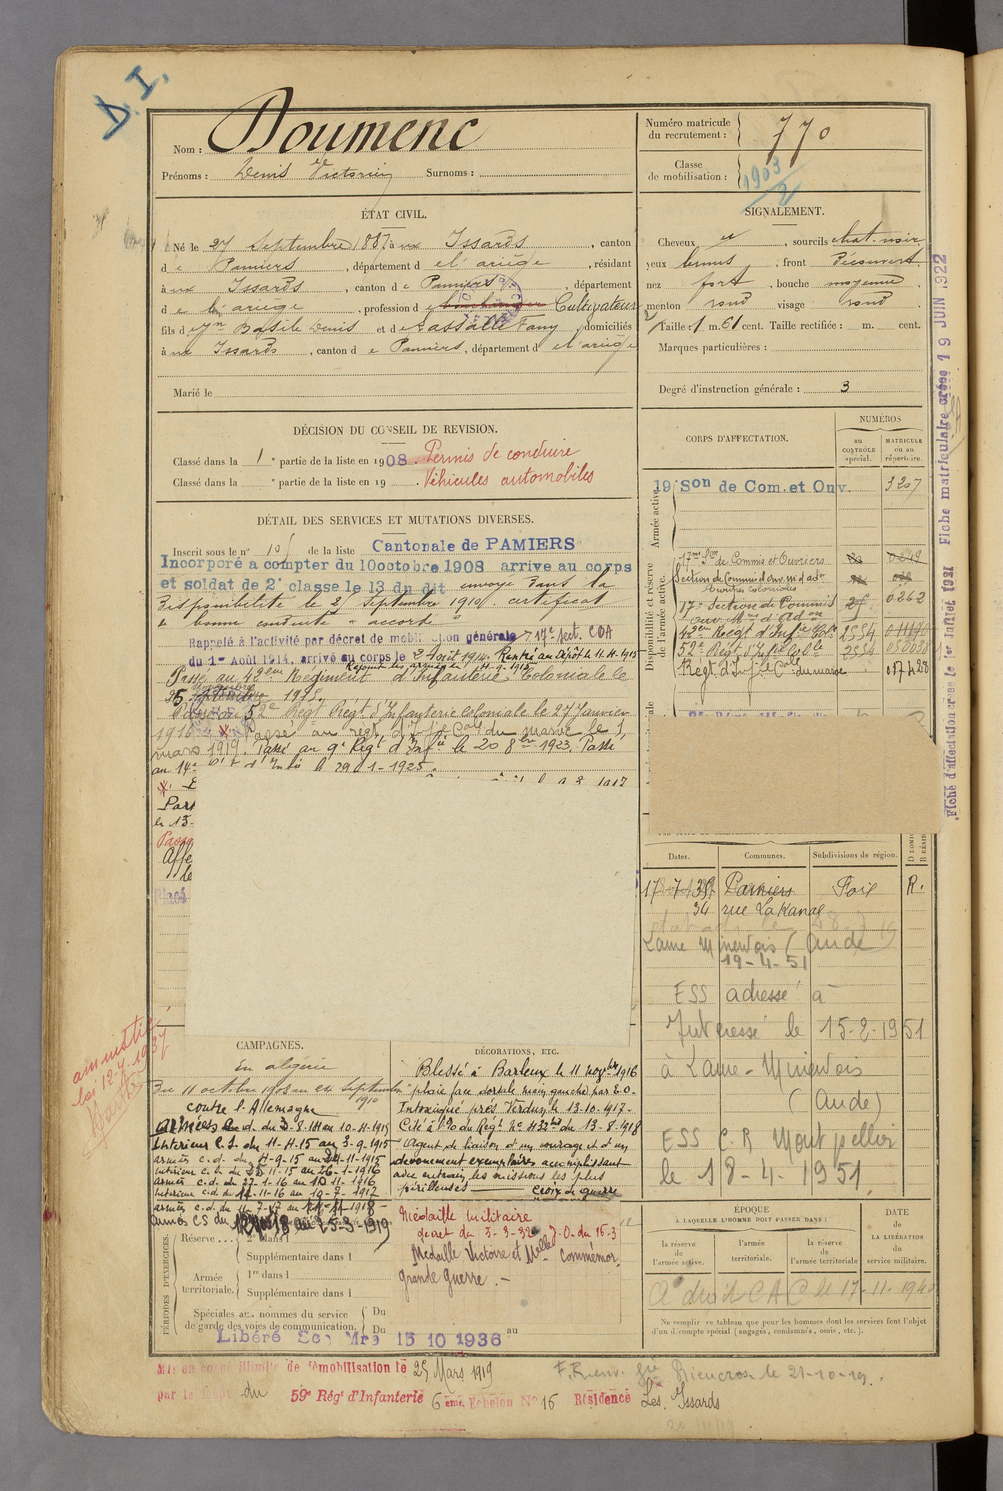 D. I.
Nom : Doumenc
Prénoms : Denis Victorin Surnoms :
Numéro matricule du recrutement : 770
Classe de mobilisation : 1903/2
ÉTAT CIVIL.
Né le 27 Septembre 1887, à ux Issards, canton
de Pamiers, département de l'ariège, résidant
à ux Issards, canton de Pamiers, département
de l'ariège, profession de Cultivateur
fils de Jn Basile Denis et de Lassalle Fany, domiciliés
à ux Issards, canton de Pamiers, département de l'ariège
Marié le
SIGNALEMENT.
Cheveux et, sourcils chat-noir
yeux bruns, front Découvert
nez fort, bouche moyenne
menton rond visage rond
Taille : 1 m. 61 cent. Taille rectifiée : m. cent.
Marques particulières :
Degré d'instruction générale : 3
DÉCISION DU CONSEIL DE REVISION.
Classé dans la 1e partie de la liste en 1908. Permis de conduire
Classé dans la e partie de la liste en 19 Véhicules automobiles
DÉTAIL DES SERVICES ET MUTATIONS DIVERSES.
Inscrit sous le n° 105 de la liste Cantonale de PAMIERS
Incorporé a compter du 10 octobre 1908 arrivé au corps
et soldat de 2e classe le 13 du dit envoyé dans la
disponibilité le 25 Septembre 1910 certificat
de bonne conduite "accordé"
Rappelé à l'activité par décret de mobilisation générale 17e Sect. COA
du 1er Août 1914, arrivé au corps le 3 Août 1914. Rentré au Dépôt le 11.11.1915
Rejoint les armées le
Passé au 42eme Régiment d'Infanterie Coloniale le
25 1915.
Passé au 52e Régt d'Infanterie Coloniale le 27 Janvier
1916. Passé au régt d'Inf. Col. du maroc le 1
mars 1919. Passé au 9e Régt d'Infie le 20 8bre 1923. Passé
au 14e Rt d'Infie le 29-1-1925.
Placé
CORPS D'AFFECTATION.
NUMÉROS
au CONTRÔLE spécial.
MATRICULE ou au répertoire.
Armée active.
19e Son de Com. et Ouv. 3207
Disponibilité et réserve de l'armée active.
17me Son de Commis et Ouvriers
Section de Commis et Ouv. m. d'adon
Ouvriers coloniales
17e Section de Commis 25 0262
ouv. Mres d'Adon
42eme Régt d'Infie Cole 2554 011170
52e Régt d'Infie Colle 2554
Régt. d'Inf. Colle du maroc 017428
Fiche matriculaire créée 19 JUIN 1922
Fiche d'affectation créée le 1er Juillet 1921
Dates. Communes. Subdivisions de région.
17-7-35 Pamiers Foix R.
34 rue Lakanal
Laure Minervois (Aude)
19-4-51
ESS adressé à
Intéressé le 15-2-1951
à Laure-Minervois
(Aude)
ESS C.R Montpellier
le 18-4-1951
amnistié
loi 12-7-1937
CAMPAGNES.
En algérie
Du 11 octobre 1908 au 24 Septembre 1910
contre l'Allemagne
Armées c.d. du 3-8-14 au 10-11-1915
Intérieur C.S. du 11-11-15 au 3-9-1915
armées c.d. du 4-9-15 au 24-11-1915
intérieur c.d. du 25-11-15 au 26-1-1916
armées c.d. du 27-1-16 au 10-11-1916
Intérieur c.d. du 11-11-16 au 10-7-1917
armées c.d. du 11-7-17 au 11-11-1918
armées CS du 12 Nov 18 au 25-3-1919
DÉCORATIONS, ETC.
Blessé à Barleux le 11 novbre 1916
"plaie face dorsale main gauche par E.O.
Intoxiqué près Verdun le 13-10-1917.
Cité à l'o. du Régt. N° du 13-8-1918
Agent de liaison d'un courage et d'un
dévouement exemplaires accomplissant
avec entrain les missions les plus
périlleuses croix de guerre
Médaille militaire
décret du 5-3-32 J.O. du 16-3
Médaille Victoire et Médlle Commémor.
Grande Guerre.
PÉRIODES D'EXERCICES.
Réserve
1re dans l
Supplémentaire dans l
Armée territoriale.
1re dans l
Supplémentaire dans l
Spéciales aux hommes du service de garde des voies de communication.
Du
Du au
Libéré Son Mre 15 10 1936
ÉPOQUE
À LAQUELLE L'HOMME DOIT PASSER DANS :
la réserve de l'armée active.
l'armée territoriale.
la réserve de l'armée territoriale
DATE de LA LIBÉRATION du service militaire.
A droit CAC le 17-11-194
Ne remplir ce tableau que pour les hommes dont les services font l'objet
d'un décompte spécial (engagés, condamnés, omis, etc.).
Mis en congé illimité de démobilisation le 25 Mars 1919
par le dépôt du 59e Régt d'Infanterie 6 ème Echelon N° 16 Résidence Les Issards
Rieucros le 21-10-19.